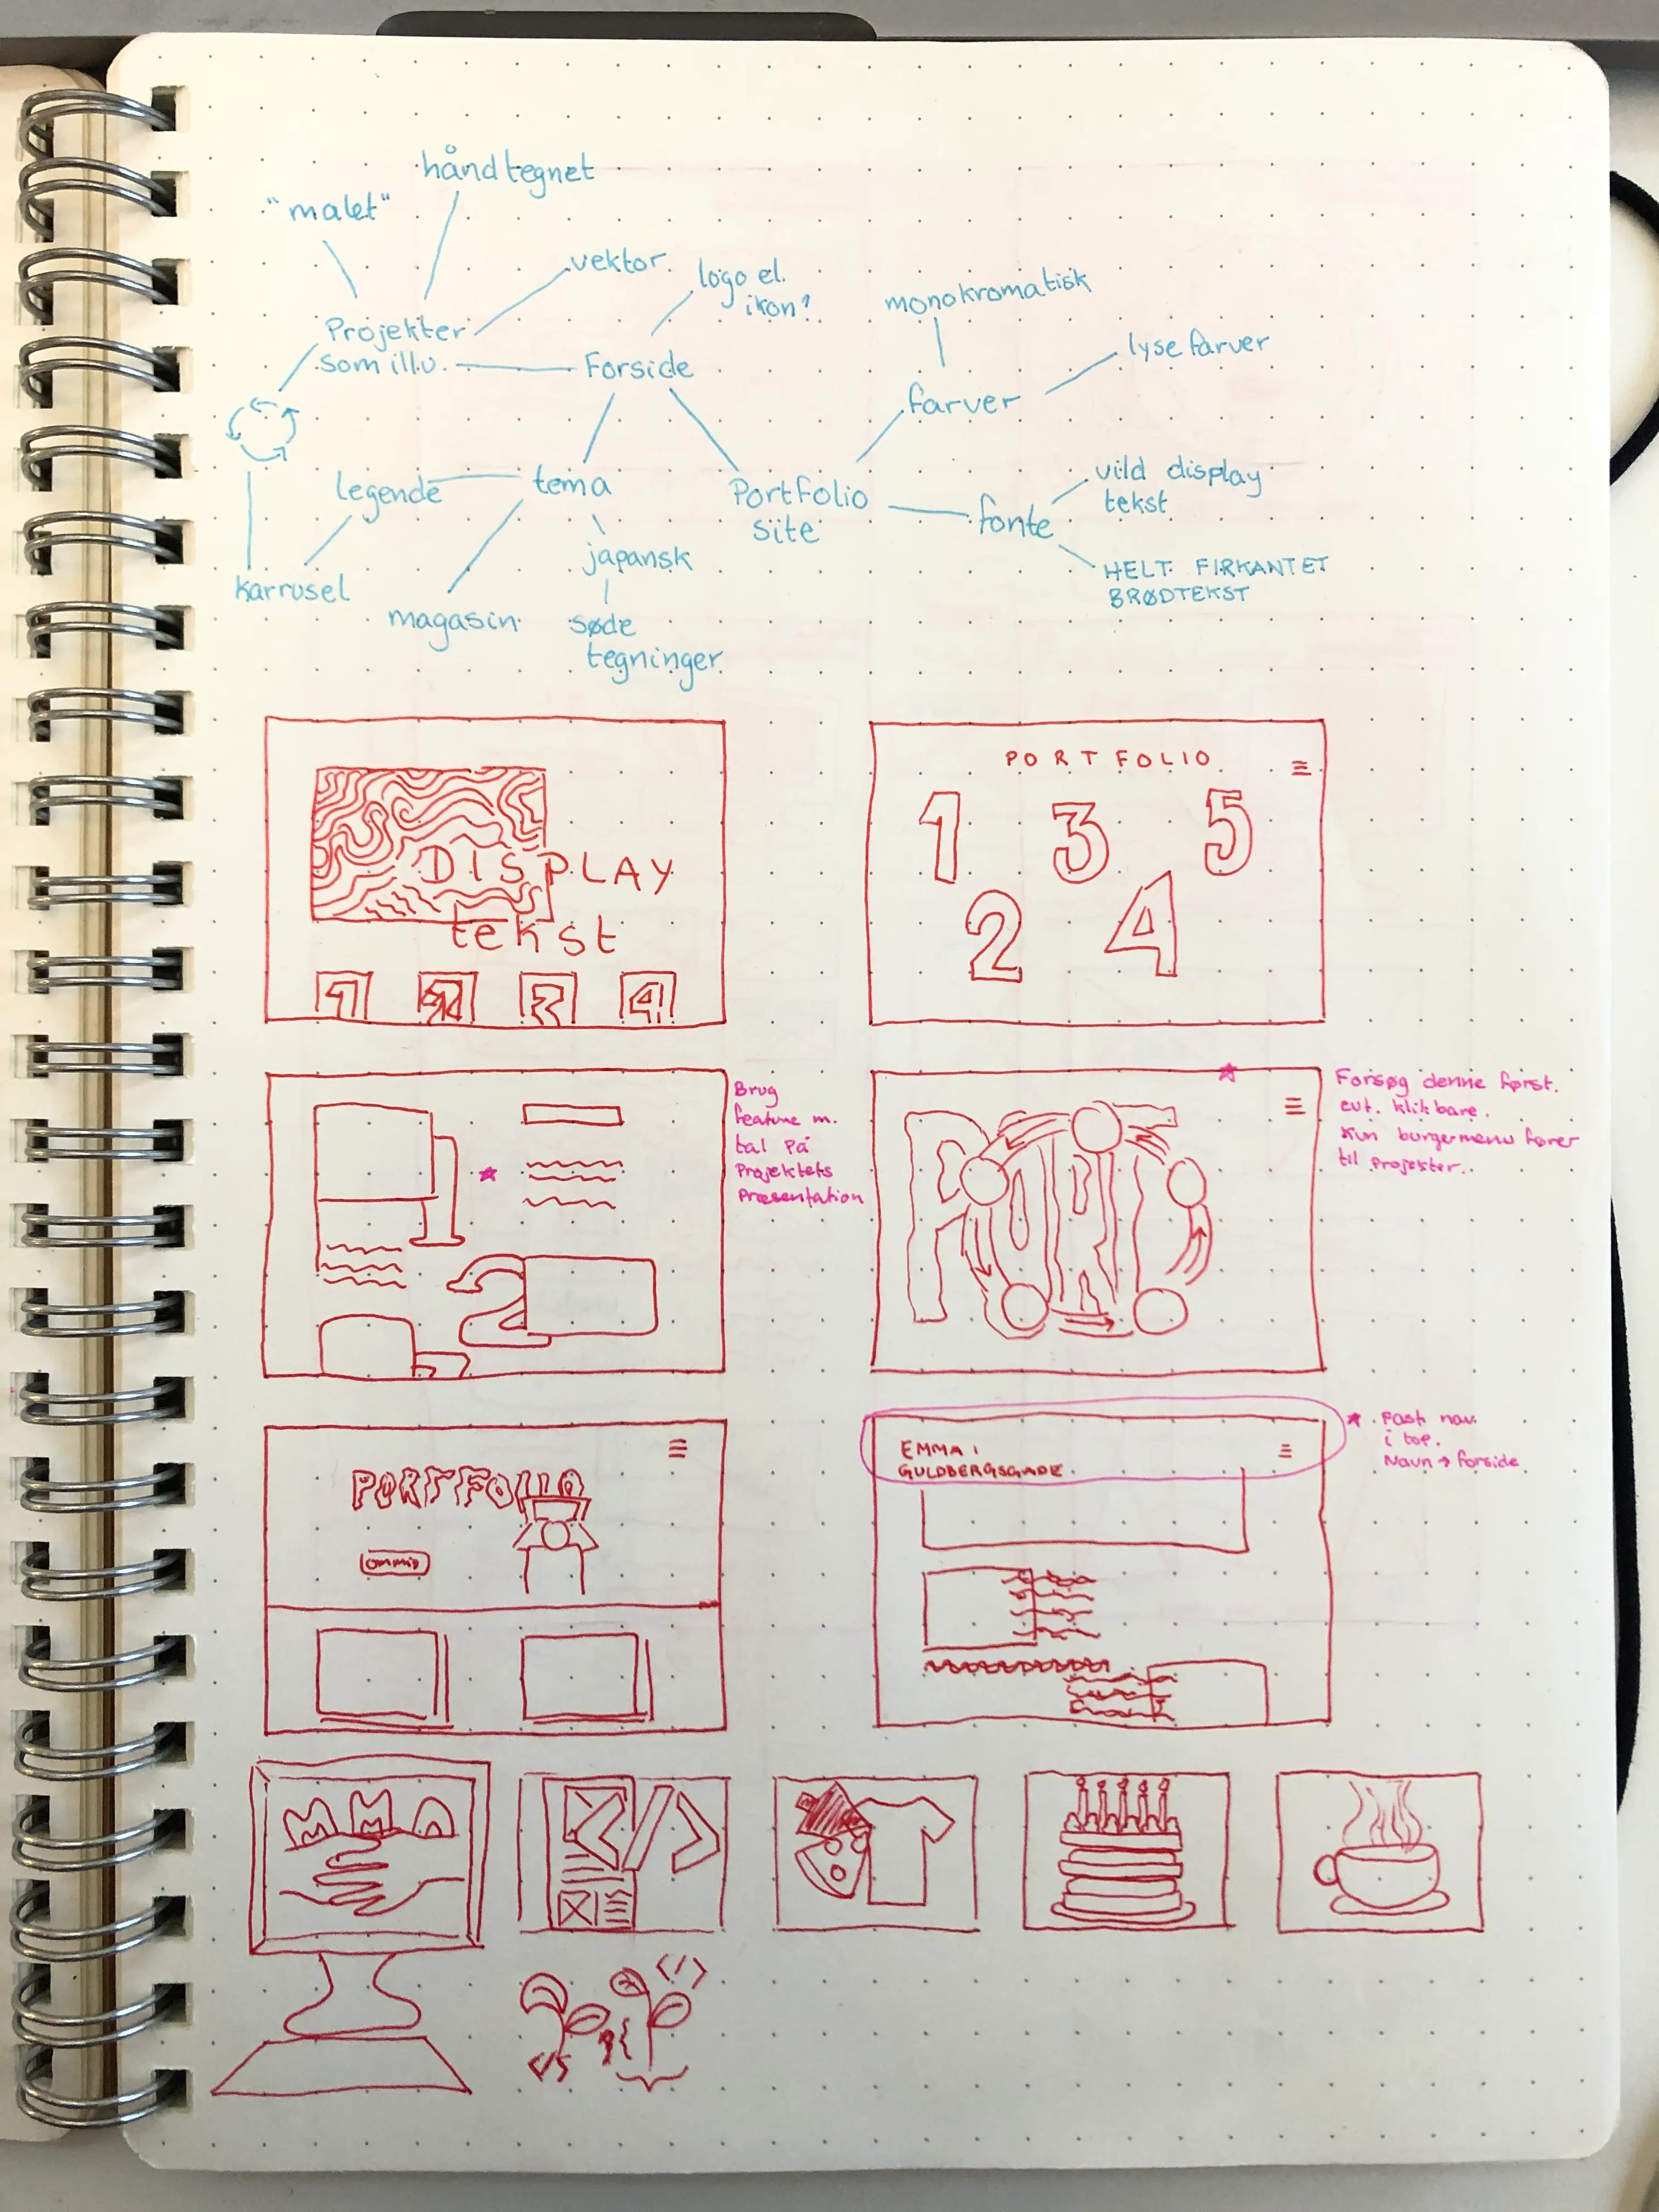 håndtegnet
"malet"
vektor
logo el.
ikon?
monokromatisk
Projekter
som illu.
Forside
lyse farver
farver
legende
tema
Portfolio
site
vild display
tekst
fonte
japansk
HELT FIRKANTET
BRØDTEKST
karrusel
magasin
søde
tegninger
DISPLAY
tekst
1 2 3 4
PORTFOLIO
1 3 5
2 4
Brug
feature m.
tal på
Projektets
Præsentation
1
2
Forsøg denne først.
evt. klikbare.
Kun burgermenu fører
til projekter.
PORTFOLIO
EMMA I
GULDBERGSGADE
Fast nav
i top.
Navn → forside
MMD
</>
</>
</>